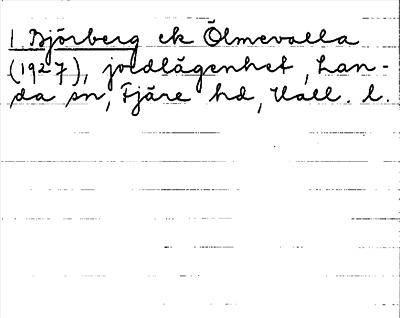 1 Björberg ek Ölmevalla
(1927), jordlägenhet, Lan-
da sn, Fjäre hd, Hall. l.